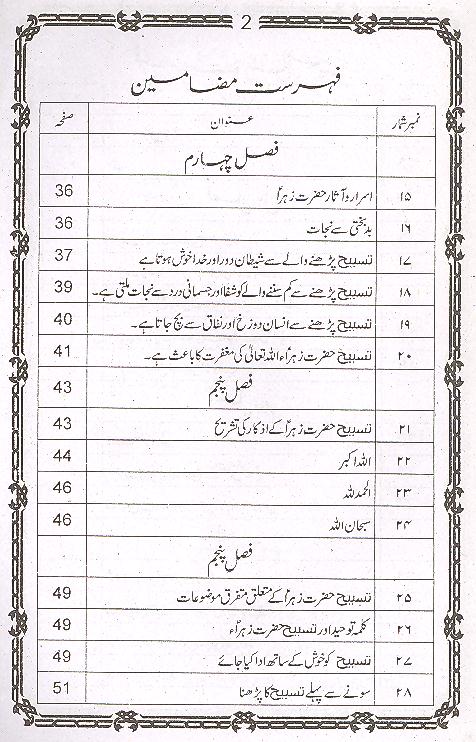 2
فہرست مضامین
نمبر شمار عنوان صفحہ
فصل چہارم
۱۵ اسرار و آثار حضرت زہراؑ 36
۱۶ بدبختی سے نجات 36
۱۷ تسبیح پڑھنے والے سے شیطان دور اور خدا خوش ہوتا ہے 37
۱۸ تسبیح پڑھنے سے کم سننے والے کو شفا اور جسمانی درد سے نجات ملتی ہے۔ 39
۱۹ تسبیح پڑھنے سے انسان دوزخ اور نفاق سے بچ جاتا ہے۔ 40
۲۰ تسبیح حضرت زہراؑء اللہ تعالیٰ کی مغفرت کا باعث ہے۔ 41
فصل پنجم 43
۲۱ تسبیح حضرت زہراؑ کے اذکار کی تشریح 43
۲۲ اللہ اکبر 44
۲۳ الحمد للہ 46
۲۴ سبحان اللہ 46
فصل پنجم
۲۵ تسبیح حضرت زہراؑ کے متعلق متفرق موضوعات 49
۲۶ کلمہ توحید اور تسبیح حضرت زہراؑء 49
۲۷ تسبیح کو خوش کے ساتھ ادا کیا جائے 49
۲۸ سونے سے پہلے تسبیح کا پڑھنا 51